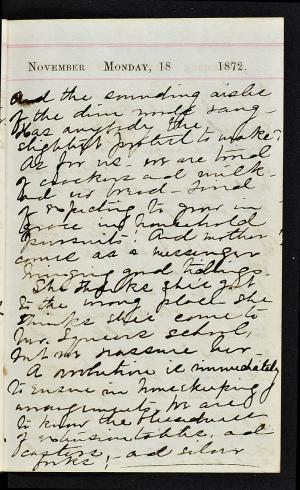 November Monday, 18 1872.
And the sounding aisles
of the dim woods rang—
Has anybody the
slightest protest to make?
As for us we are tired
of crackers and milk—
and no bread—tired
of expecting to grow in
grace in household
pursuits! And mother
comes as a messenger
bringing good tidings
She thinks she's got
to the wrong place she
thinks she's come to
Mr. school,
but we reassure her
A revolution is immediately
to ensue in housekeeping
arrangements. We are
to know the blessedness
of extension tables, and
castors, and silver
forks,